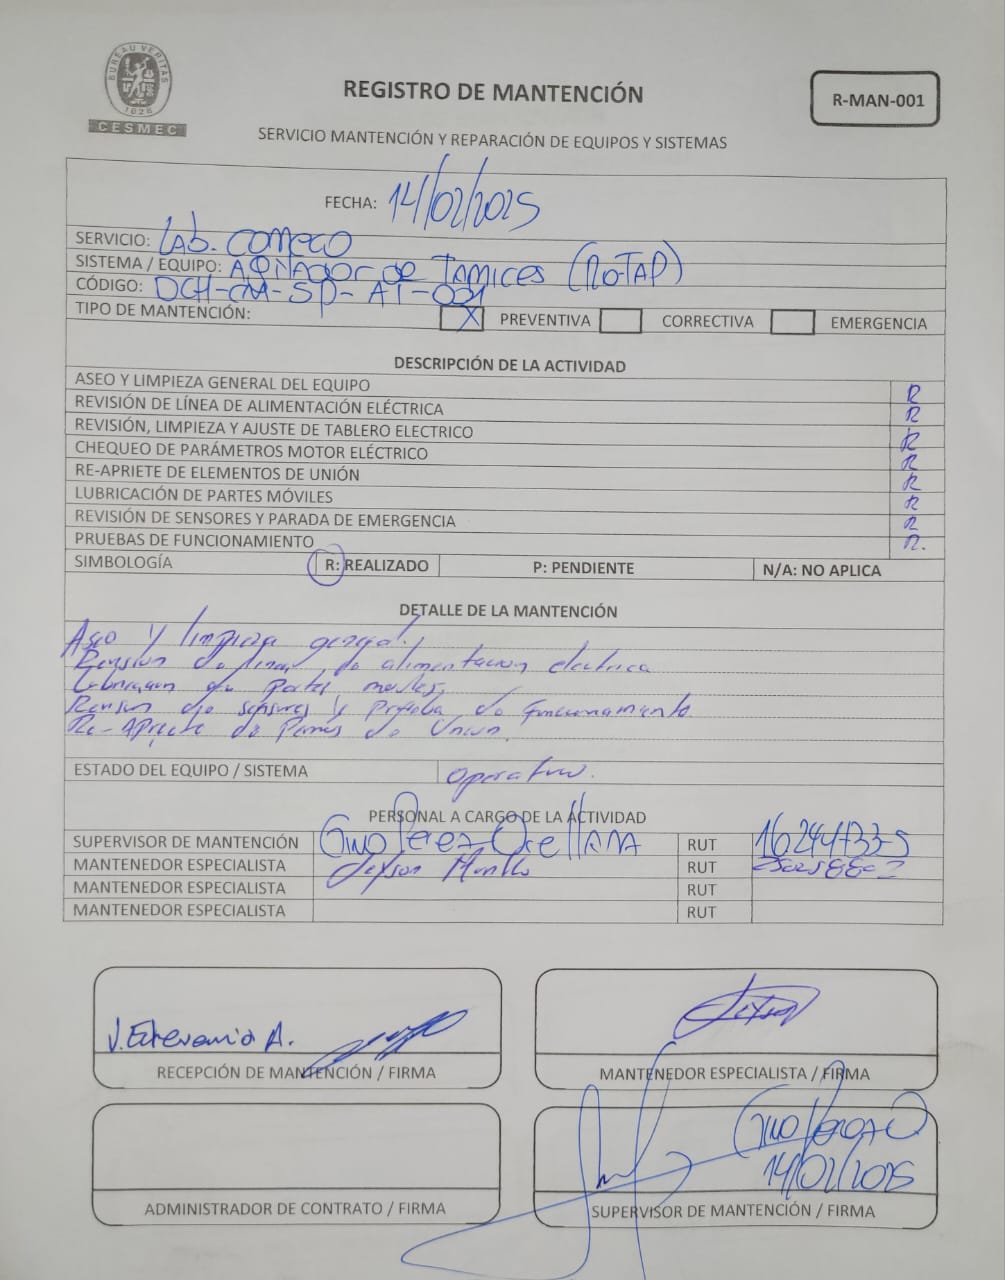 BUREAU VERITAS
1828
CESMEC
REGISTRO DE MANTENCIÓN
R-MAN-001
SERVICIO MANTENCIÓN Y REPARACIÓN DE EQUIPOS Y SISTEMAS
FECHA: 14/02/2025
SERVICIO: LAB.
SISTEMA / EQUIPO: de Tamices (RoTAP)
CÓDIGO: DCH-CM-SP-AT-001
TIPO DE MANTENCIÓN: X PREVENTIVA CORRECTIVA EMERGENCIA
DESCRIPCIÓN DE LA ACTIVIDAD
ASEO Y LIMPIEZA GENERAL DEL EQUIPO R
REVISIÓN DE LÍNEA DE ALIMENTACIÓN ELÉCTRICA R
REVISIÓN, LIMPIEZA Y AJUSTE DE TABLERO ELECTRICO R
CHEQUEO DE PARÁMETROS MOTOR ELÉCTRICO R
RE-APRIETE DE ELEMENTOS DE UNIÓN R
LUBRICACIÓN DE PARTES MÓVILES R
REVISIÓN DE SENSORES Y PARADA DE EMERGENCIA R
PRUEBAS DE FUNCIONAMIENTO R.
SIMBOLOGÍA R: REALIZADO P: PENDIENTE N/A: NO APLICA
DETALLE DE LA MANTENCIÓN
Aseo y limpieza general.
Revision de linea de alimentacion electrica
Lubricacion de partes moviles.
Revision de sensores y prueba de funcionamiento.
Re-Apriete de Pernos de Union.
ESTADO DEL EQUIPO / SISTEMA operativo.
PERSONAL A CARGO DE LA ACTIVIDAD
SUPERVISOR DE MANTENCIÓN Gino Perez Orellana RUT 16244733-5
MANTENEDOR ESPECIALISTA RUT
MANTENEDOR ESPECIALISTA RUT
MANTENEDOR ESPECIALISTA RUT
J. Echeverria A.
RECEPCIÓN DE MANTENCIÓN / FIRMA
MANTENEDOR ESPECIALISTA / FIRMA
Gino Perez O
14/02/2025
ADMINISTRADOR DE CONTRATO / FIRMA
SUPERVISOR DE MANTENCIÓN / FIRMA